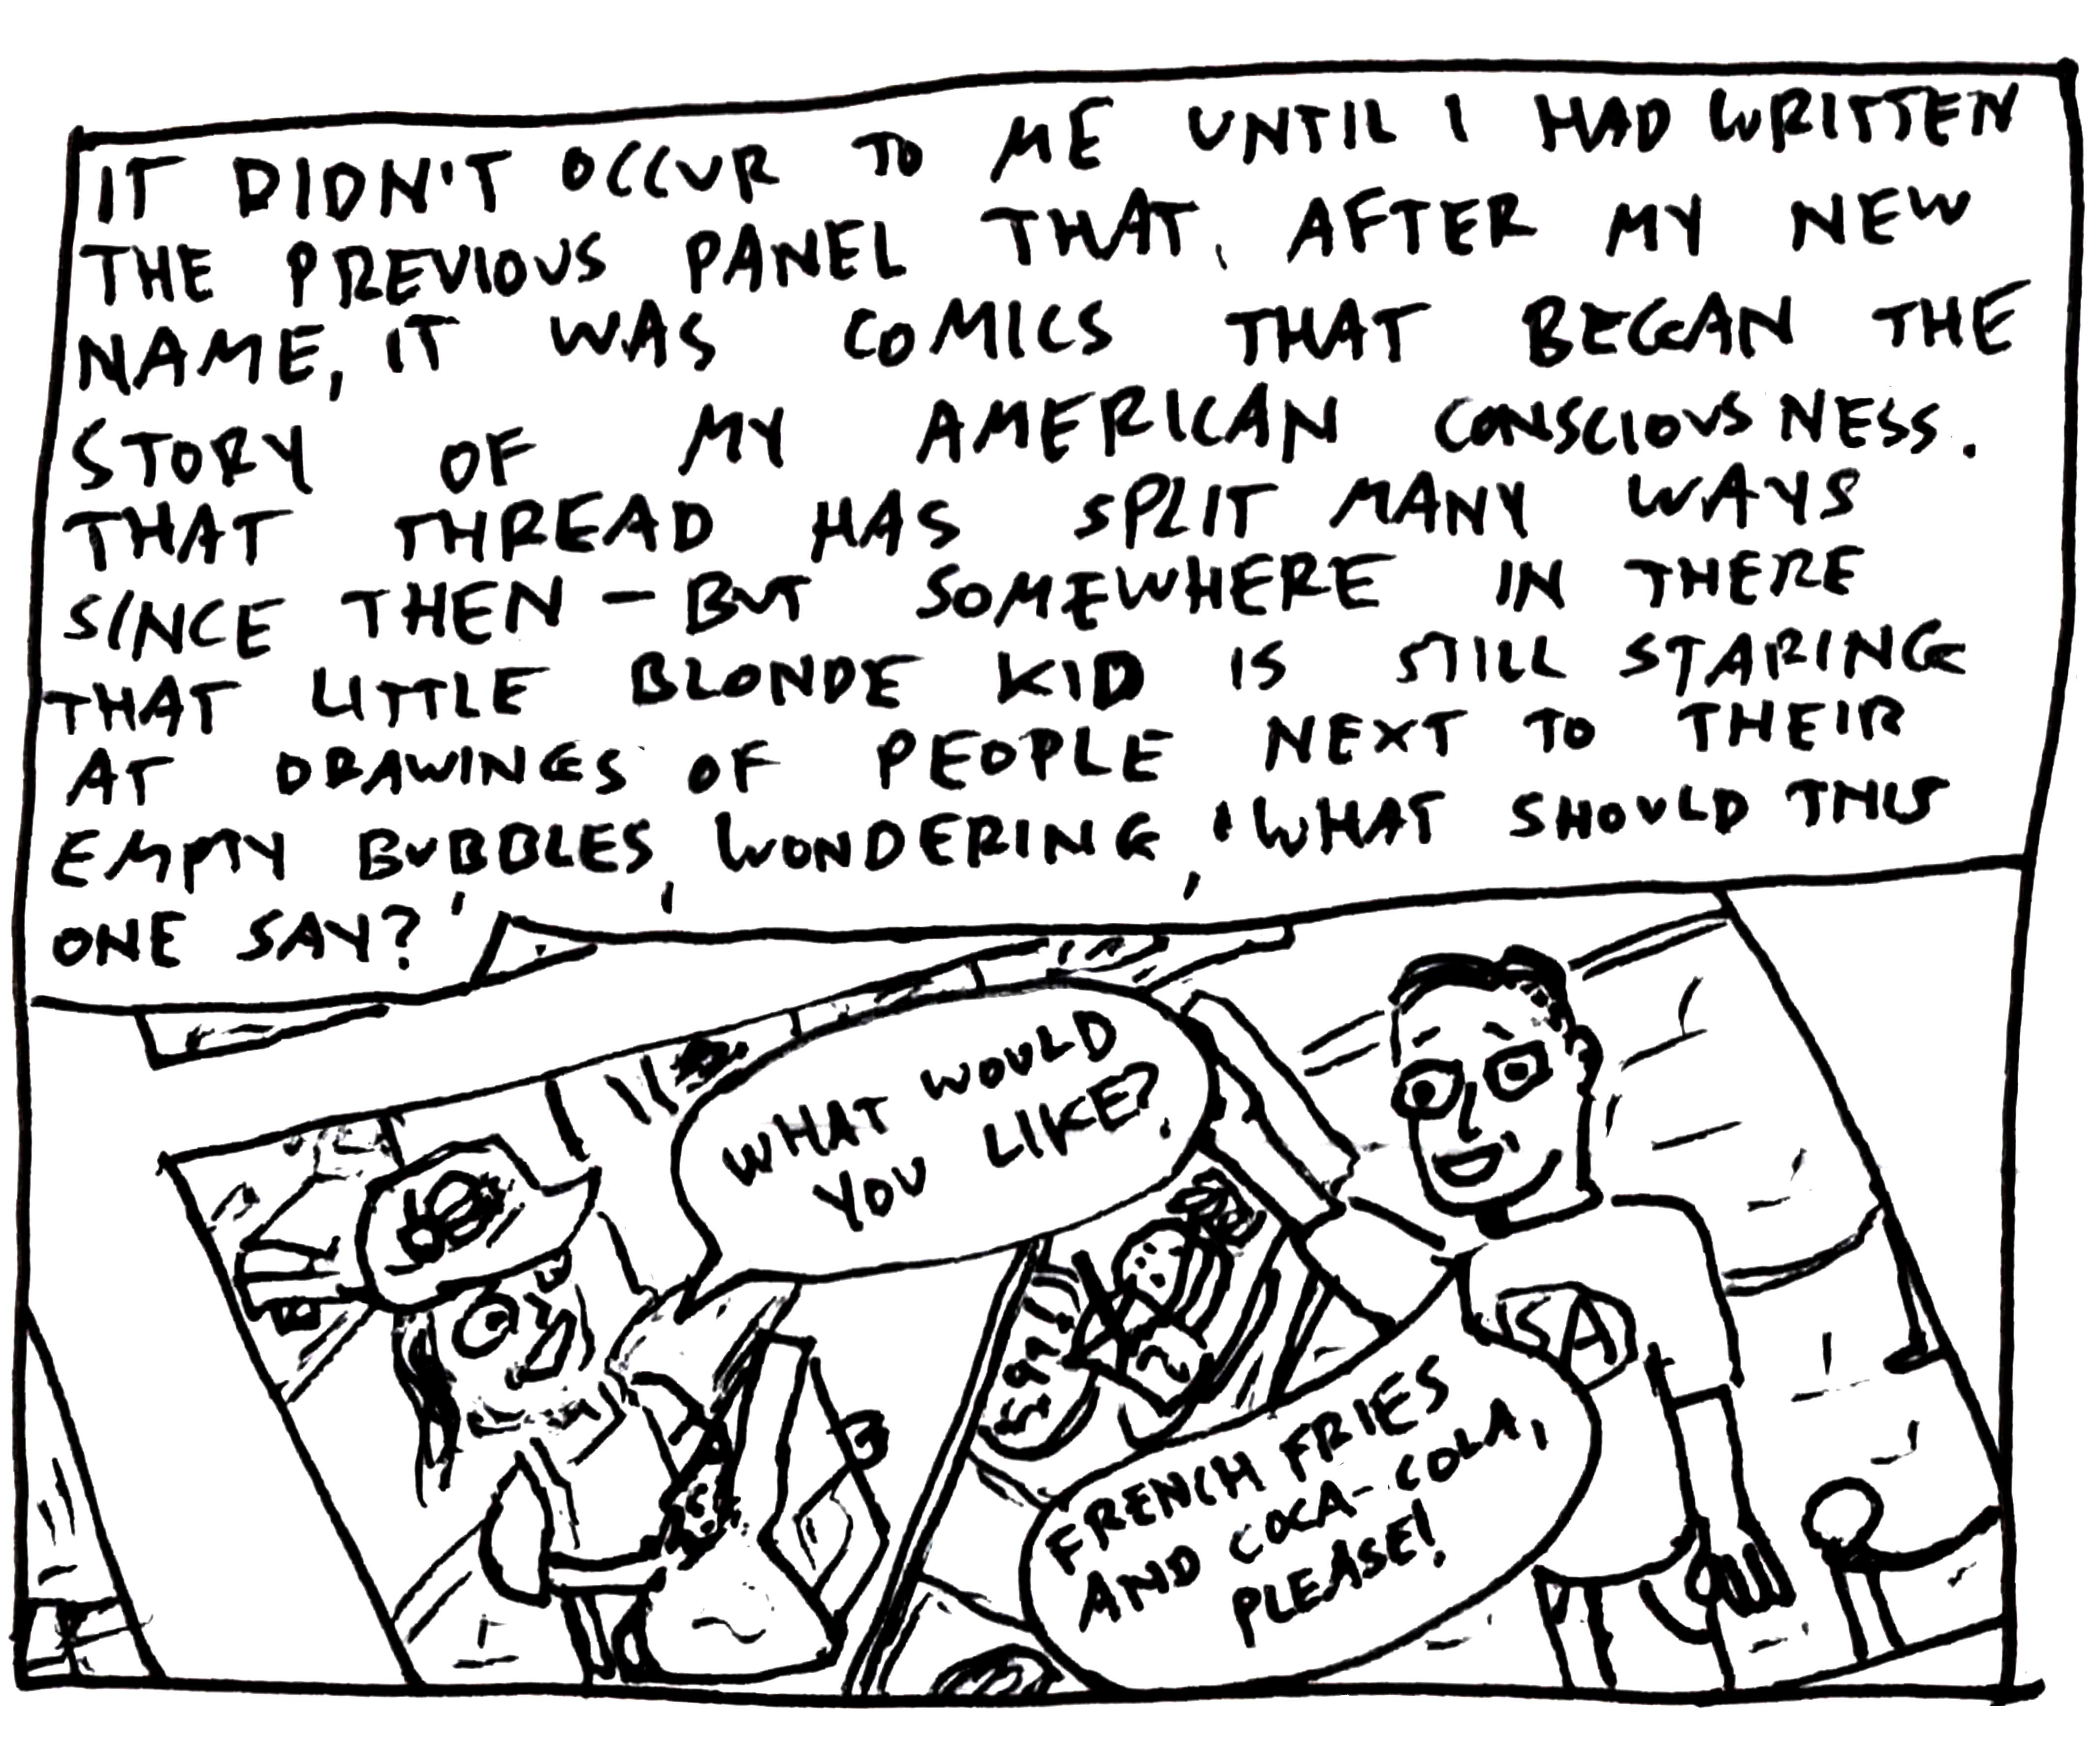 IT DIDN'T OCCUR TO ME UNTIL I HAD WRITTEN
THE PREVIOUS PANEL THAT, AFTER MY NEW
NAME, IT WAS COMICS THAT BEGAN THE
STORY OF MY AMERICAN CONSCIOUSNESS.
THAT THREAD HAS SPLIT MANY WAYS
SINCE THEN - BUT SOMEWHERE IN THERE
THAT LITTLE BLONDE KID IS STILL STARING
AT DRAWINGS OF PEOPLE NEXT TO THEIR
EMPTY BUBBLES, WONDERING, 'WHAT SHOULD THIS
ONE SAY?'
WHAT WOULD
YOU LIKE?
FRENCH FRIES
AND COCA-COLA,
PLEASE!
SA